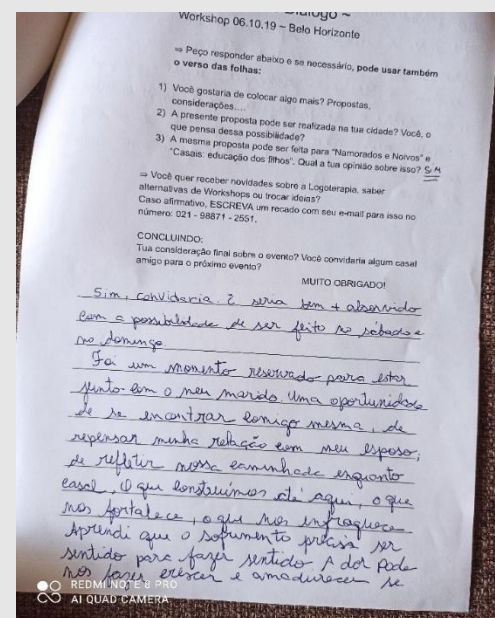 Diálogo ~
Workshop 06.10.19 ~ Belo Horizonte
⇒ Peço responder abaixo e se necessário, pode usar também
o verso das folhas:
1) Você gostaria de colocar algo mais? Propostas,
considerações....
2) A presente proposta pode ser realizada na tua cidade? Você, o
que pensa dessa possibilidade?
3) A mesma proposta pode ser feita para "Namorados e Noivos" e
"Casais: educação dos filhos". Qual a tua opinião sobre isso? SIM
⇒ Você quer receber novidades sobre a Logoterapia, saber
alternativas de Workshops ou trocar ideias?
Caso afirmativo, ESCREVA um recado com seu e-mail para isso no
número: 021 - 98871 - 2551.
CONCLUINDO:
Tua consideração final sobre o evento? Você convidaria algum casal
amigo para o próximo evento?
MUITO OBRIGADO!
Sim, convidaria. E seria bem + absorvido
com a possibilidade de ser feito no sábado e
no domingo
Foi um momento reservado para estar
junto com o meu marido. Uma oportunidade
de se encontrar comigo mesma, de
repensar minha relação com meu esposo;
de refletir nossa caminhada enquanto
casal, O que construímos até aqui, o que
nos fortalece, o que nos enfraquece
Aprendi que o sofrimento precisa ser
sentido para fazer sentido. A dor pode
nos fazer crescer e amadurecer se
REDMI NOTE 8 PRO
AI QUAD CAMERA